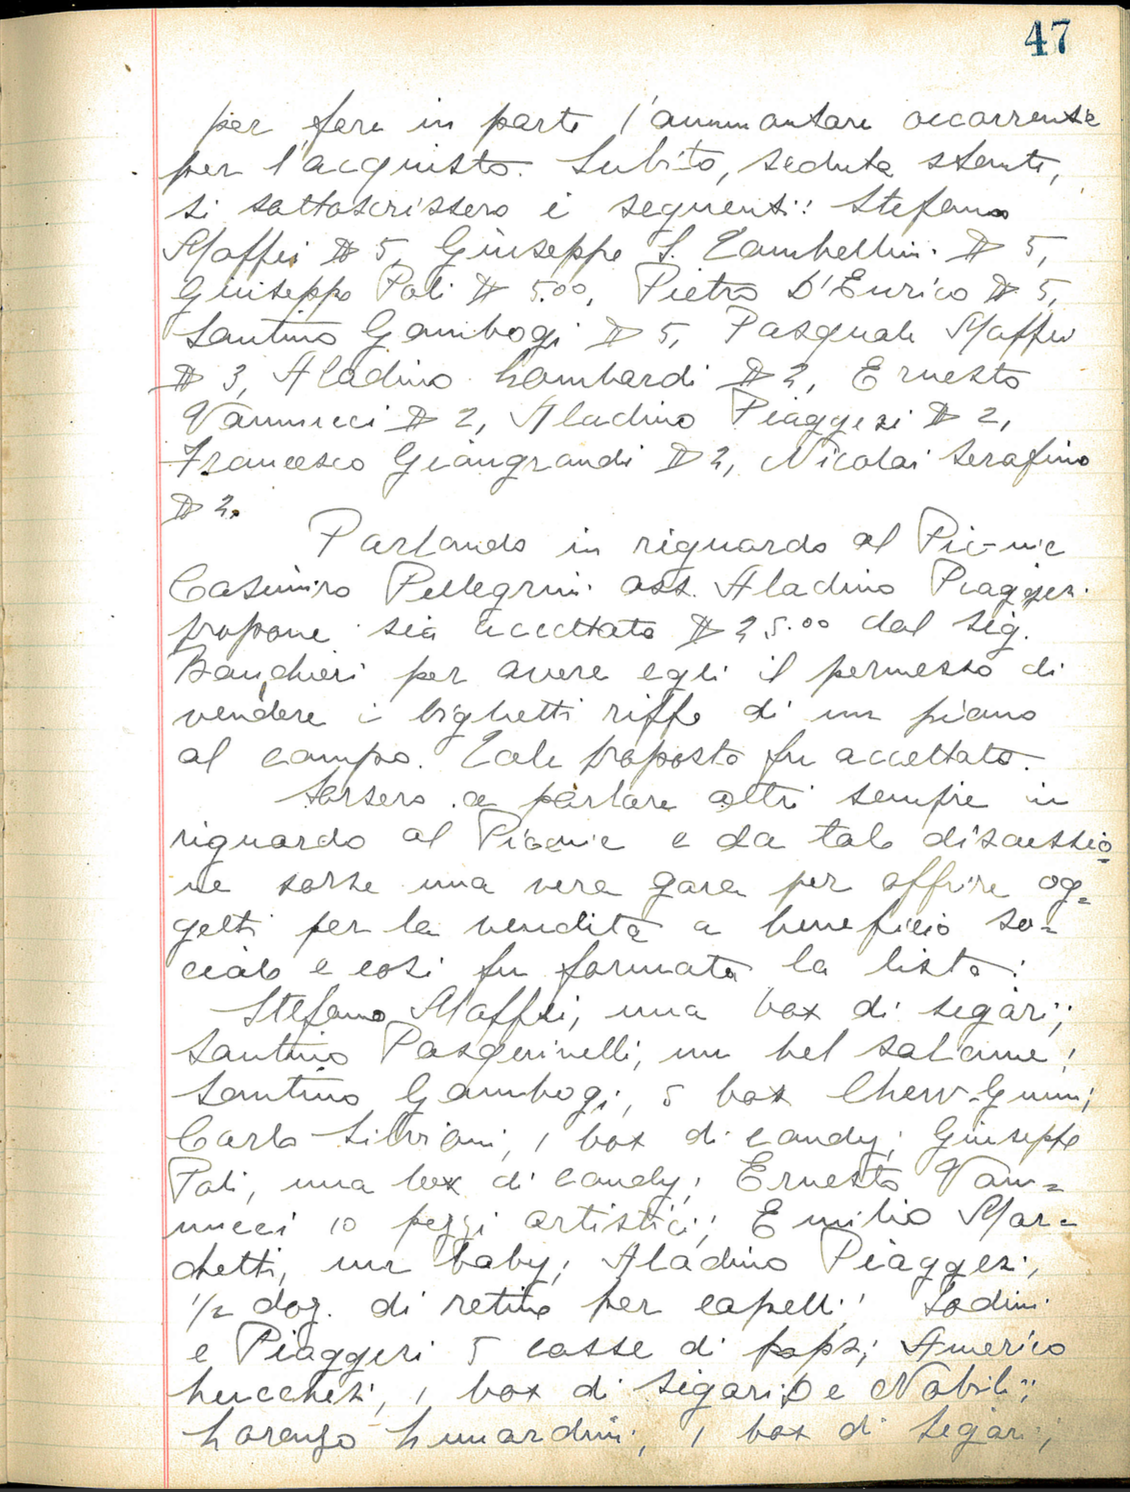 47
per fare in parte l'ammontare occorrente
per l'acquisto. Subito, seduta stante,
si sottoscrissero i seguenti: Stefano
Maffei $ 5, Giuseppe S. Zambellini $ 5,
Giuseppe Poli $ 5.00, Pietro D'Enrico $ 5,
Santino Gambogi $ 5, Pasquale Maffei
$ 3, Aladino Lombardi $ 2, Ernesto
Vannucci $ 2, Aladino Piaggesi $ 2,
Francesco Giangrandi $ 2, Nicolai Serafino
$ 2.
Parlando in riguardo al Pic-nic
Casimiro Pellegrini ass. Aladino Piaggesi
propone sia accettato $ 25.00 dal Sig.
Banchieri per avere egli il permesso di
vendere i bighetti riffe di un piano
al campo. Tale proposto fu accettato.
Sorsero a parlare altri sempre in
riguardo al Picnic e da tale discussio-
ne sorse una vera gara per offrire og=
getti per la vendita a beneficio so-
ciale e così fu formata la lista:
Stefano Maffei, una box di segari;
Santino Pasquinelli, un bel salame;
Santino Gambogi, 5 box Chew-Gum;
Carlo Silviani, 1 box di candy; Giuseppe
Poli, una box di candy; Ernesto Van=
nucci 10 pezzi artistici; Emilio Mar-
chetti, un baby; Aladino Piaggesi,
1/2 doz. di retine per capelli; Sodini
e Piaggesi 5 casse di pops; Americo
Lucchesi, 1 box di segari De Nobili;
Lorenzo Lunardini, 1 box di segari;